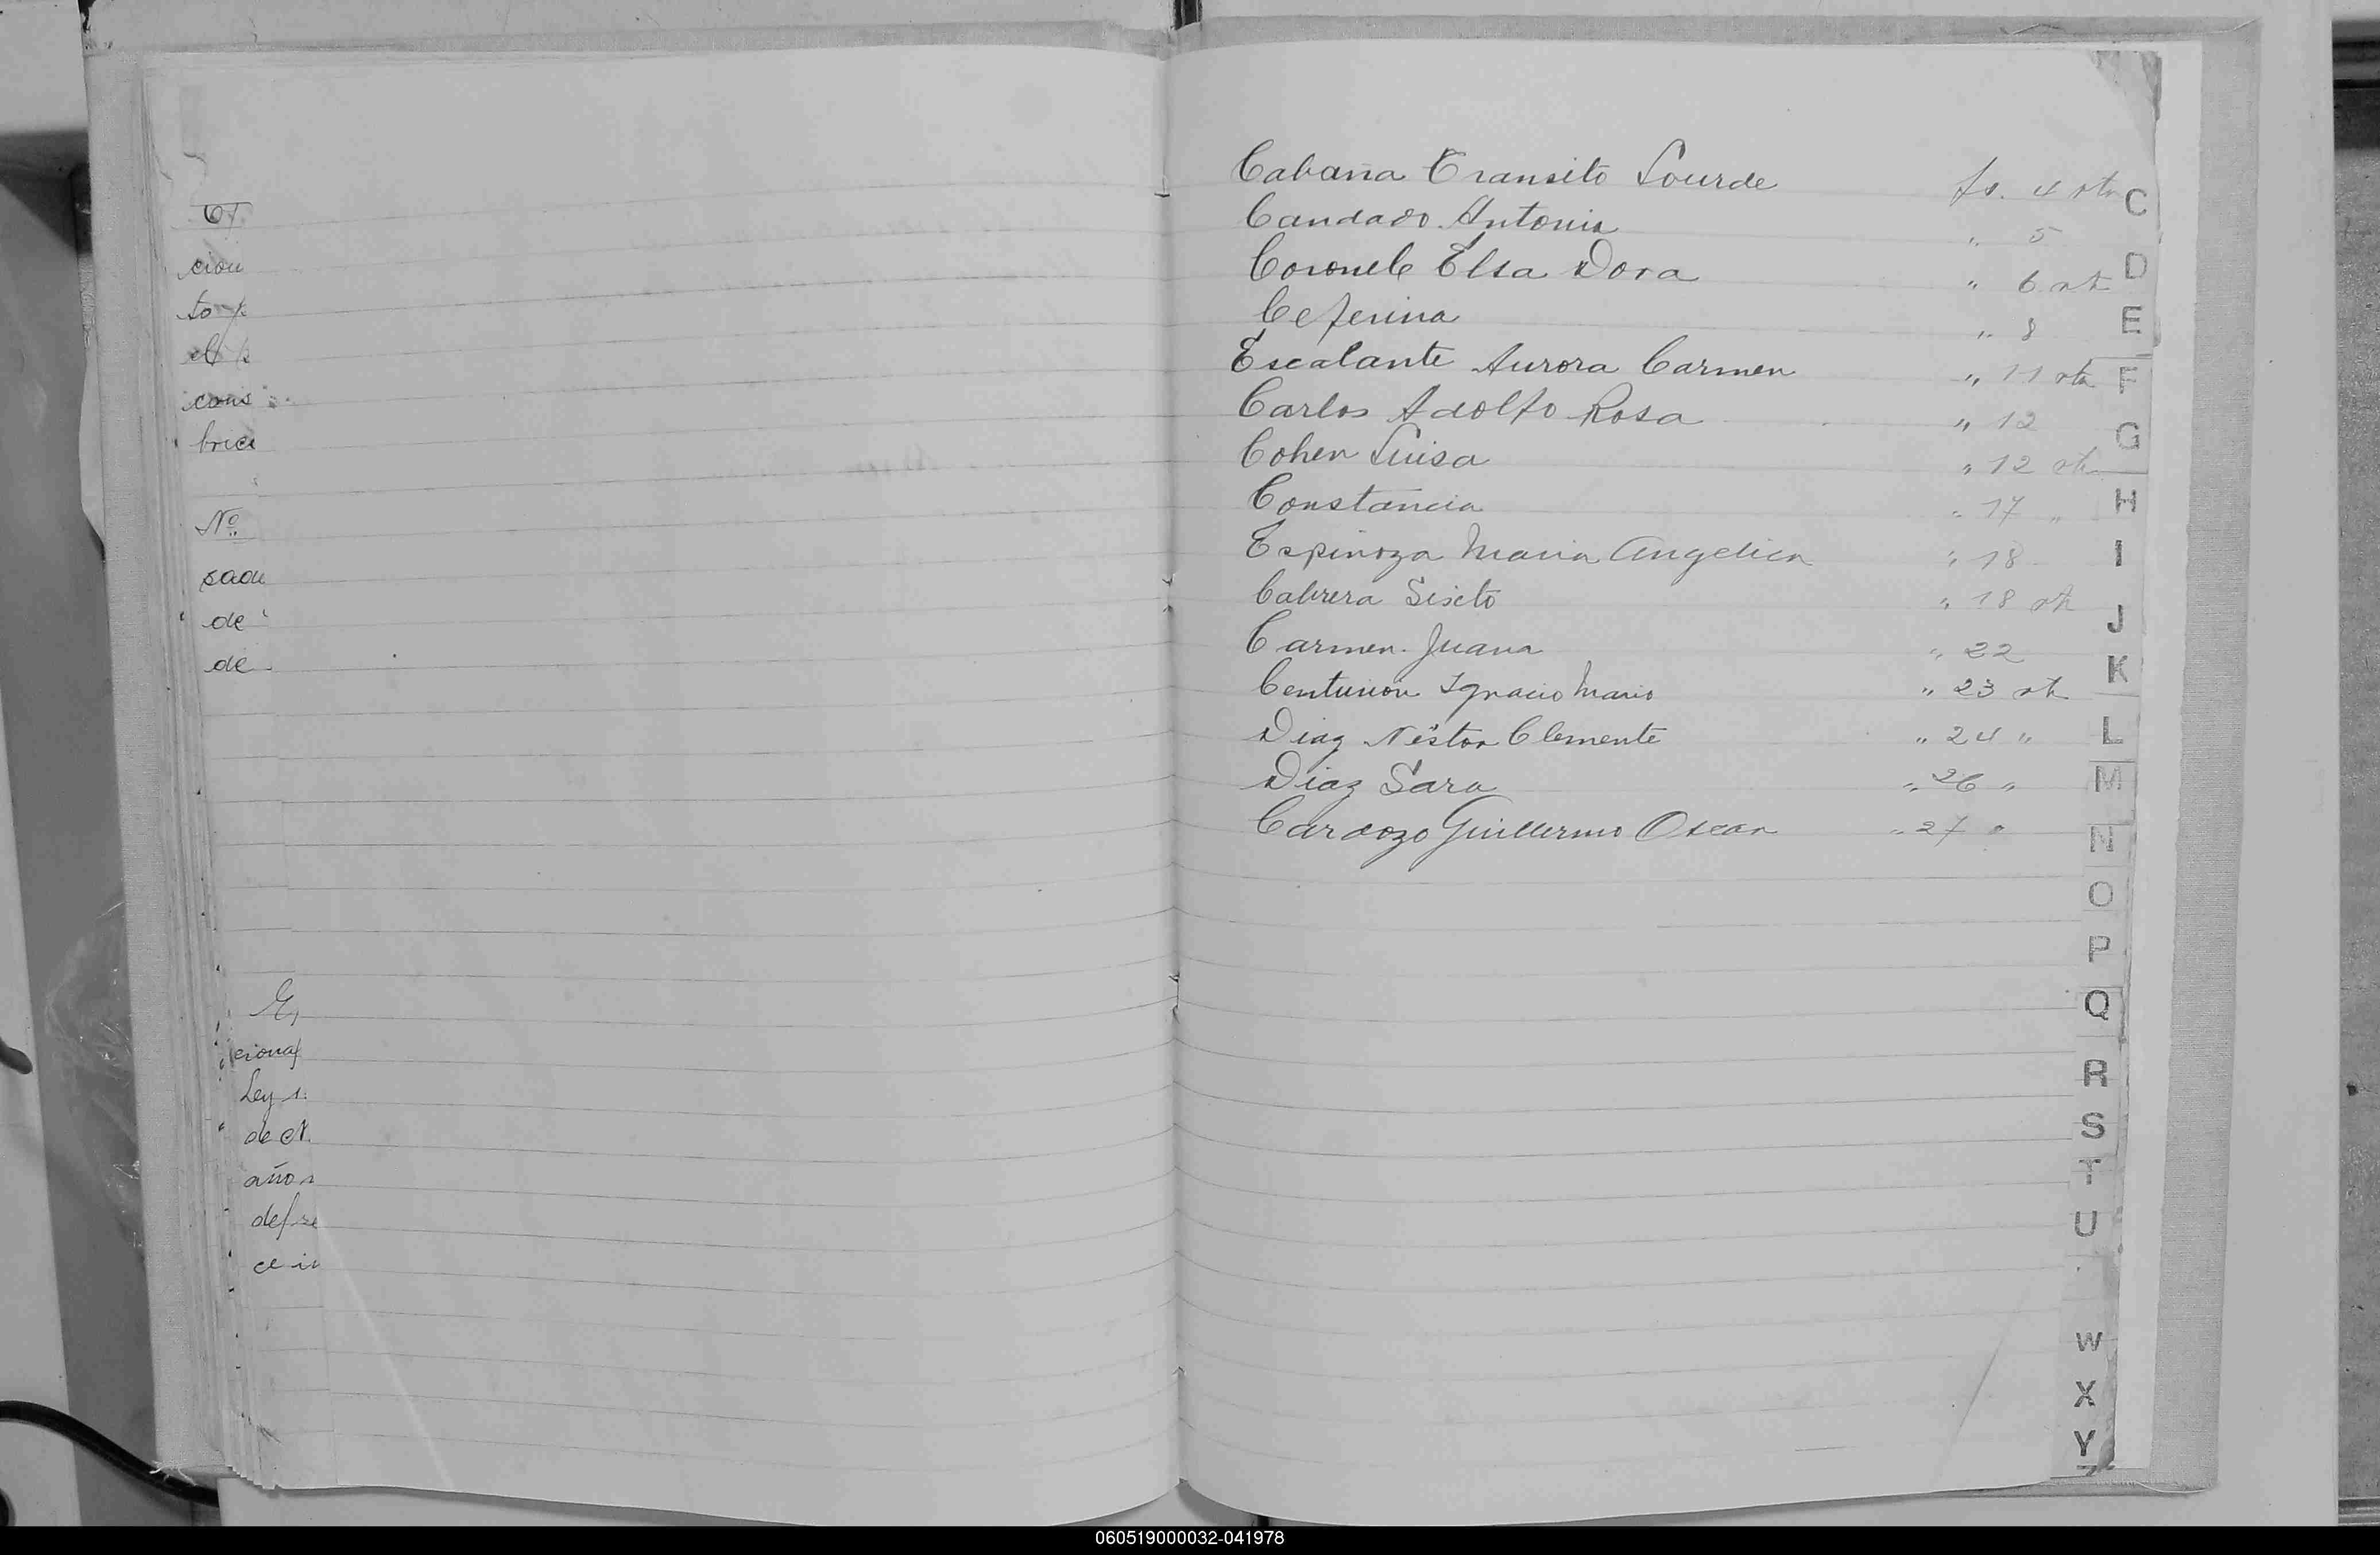 cion
to
el
cons
Nº
de
de
ciona
Ley
de N
año
del re
ce in
Cabaña Transito Lourde fs. 4 vta
Candado Antonia " 5
Coronel Elsa Dora " 6 vta
Ceferina " 8
Escalante Aurora Carmen " 11 vta
Carlos Adolfo Rosa " 12
Cohen Luisa " 12 vta
Constancia " 17 "
Espinoza Maria Angelica " 18
Cabrera Sixto " 18 vta
Carmen Juana " 22
Centurion Ignacio Mario " 23 vta
Diaz Néstor Clemente " 24 "
Diaz Sara " 26 "
Cardozo Guillermo Oscar " 27 "
C
D
E
F
G
H
I
J
K
L
M
N
O
P
Q
R
S
T
U
W
X
Y
Z
060519000032-041978